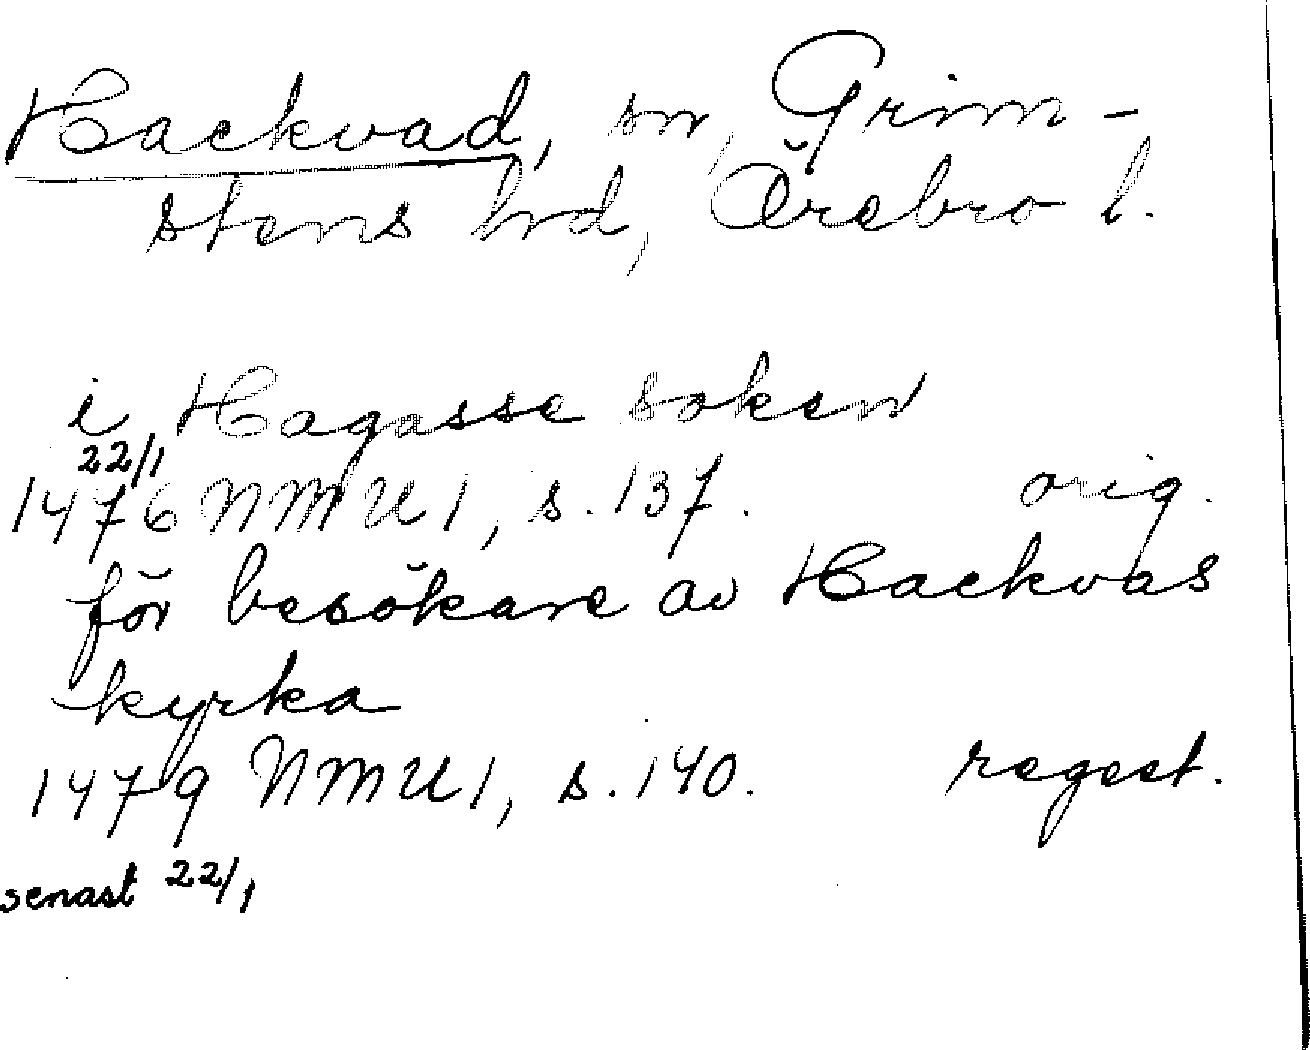 Hackvad, sn, Grim-
stens hrd, Örebro l.
i Hagasse soken
22/1
1476 NMU 1, s. 137. orig.
för besökare av Hackvas
kyrka
1479 NMU 1, s. 140. regest.
senast 22/1